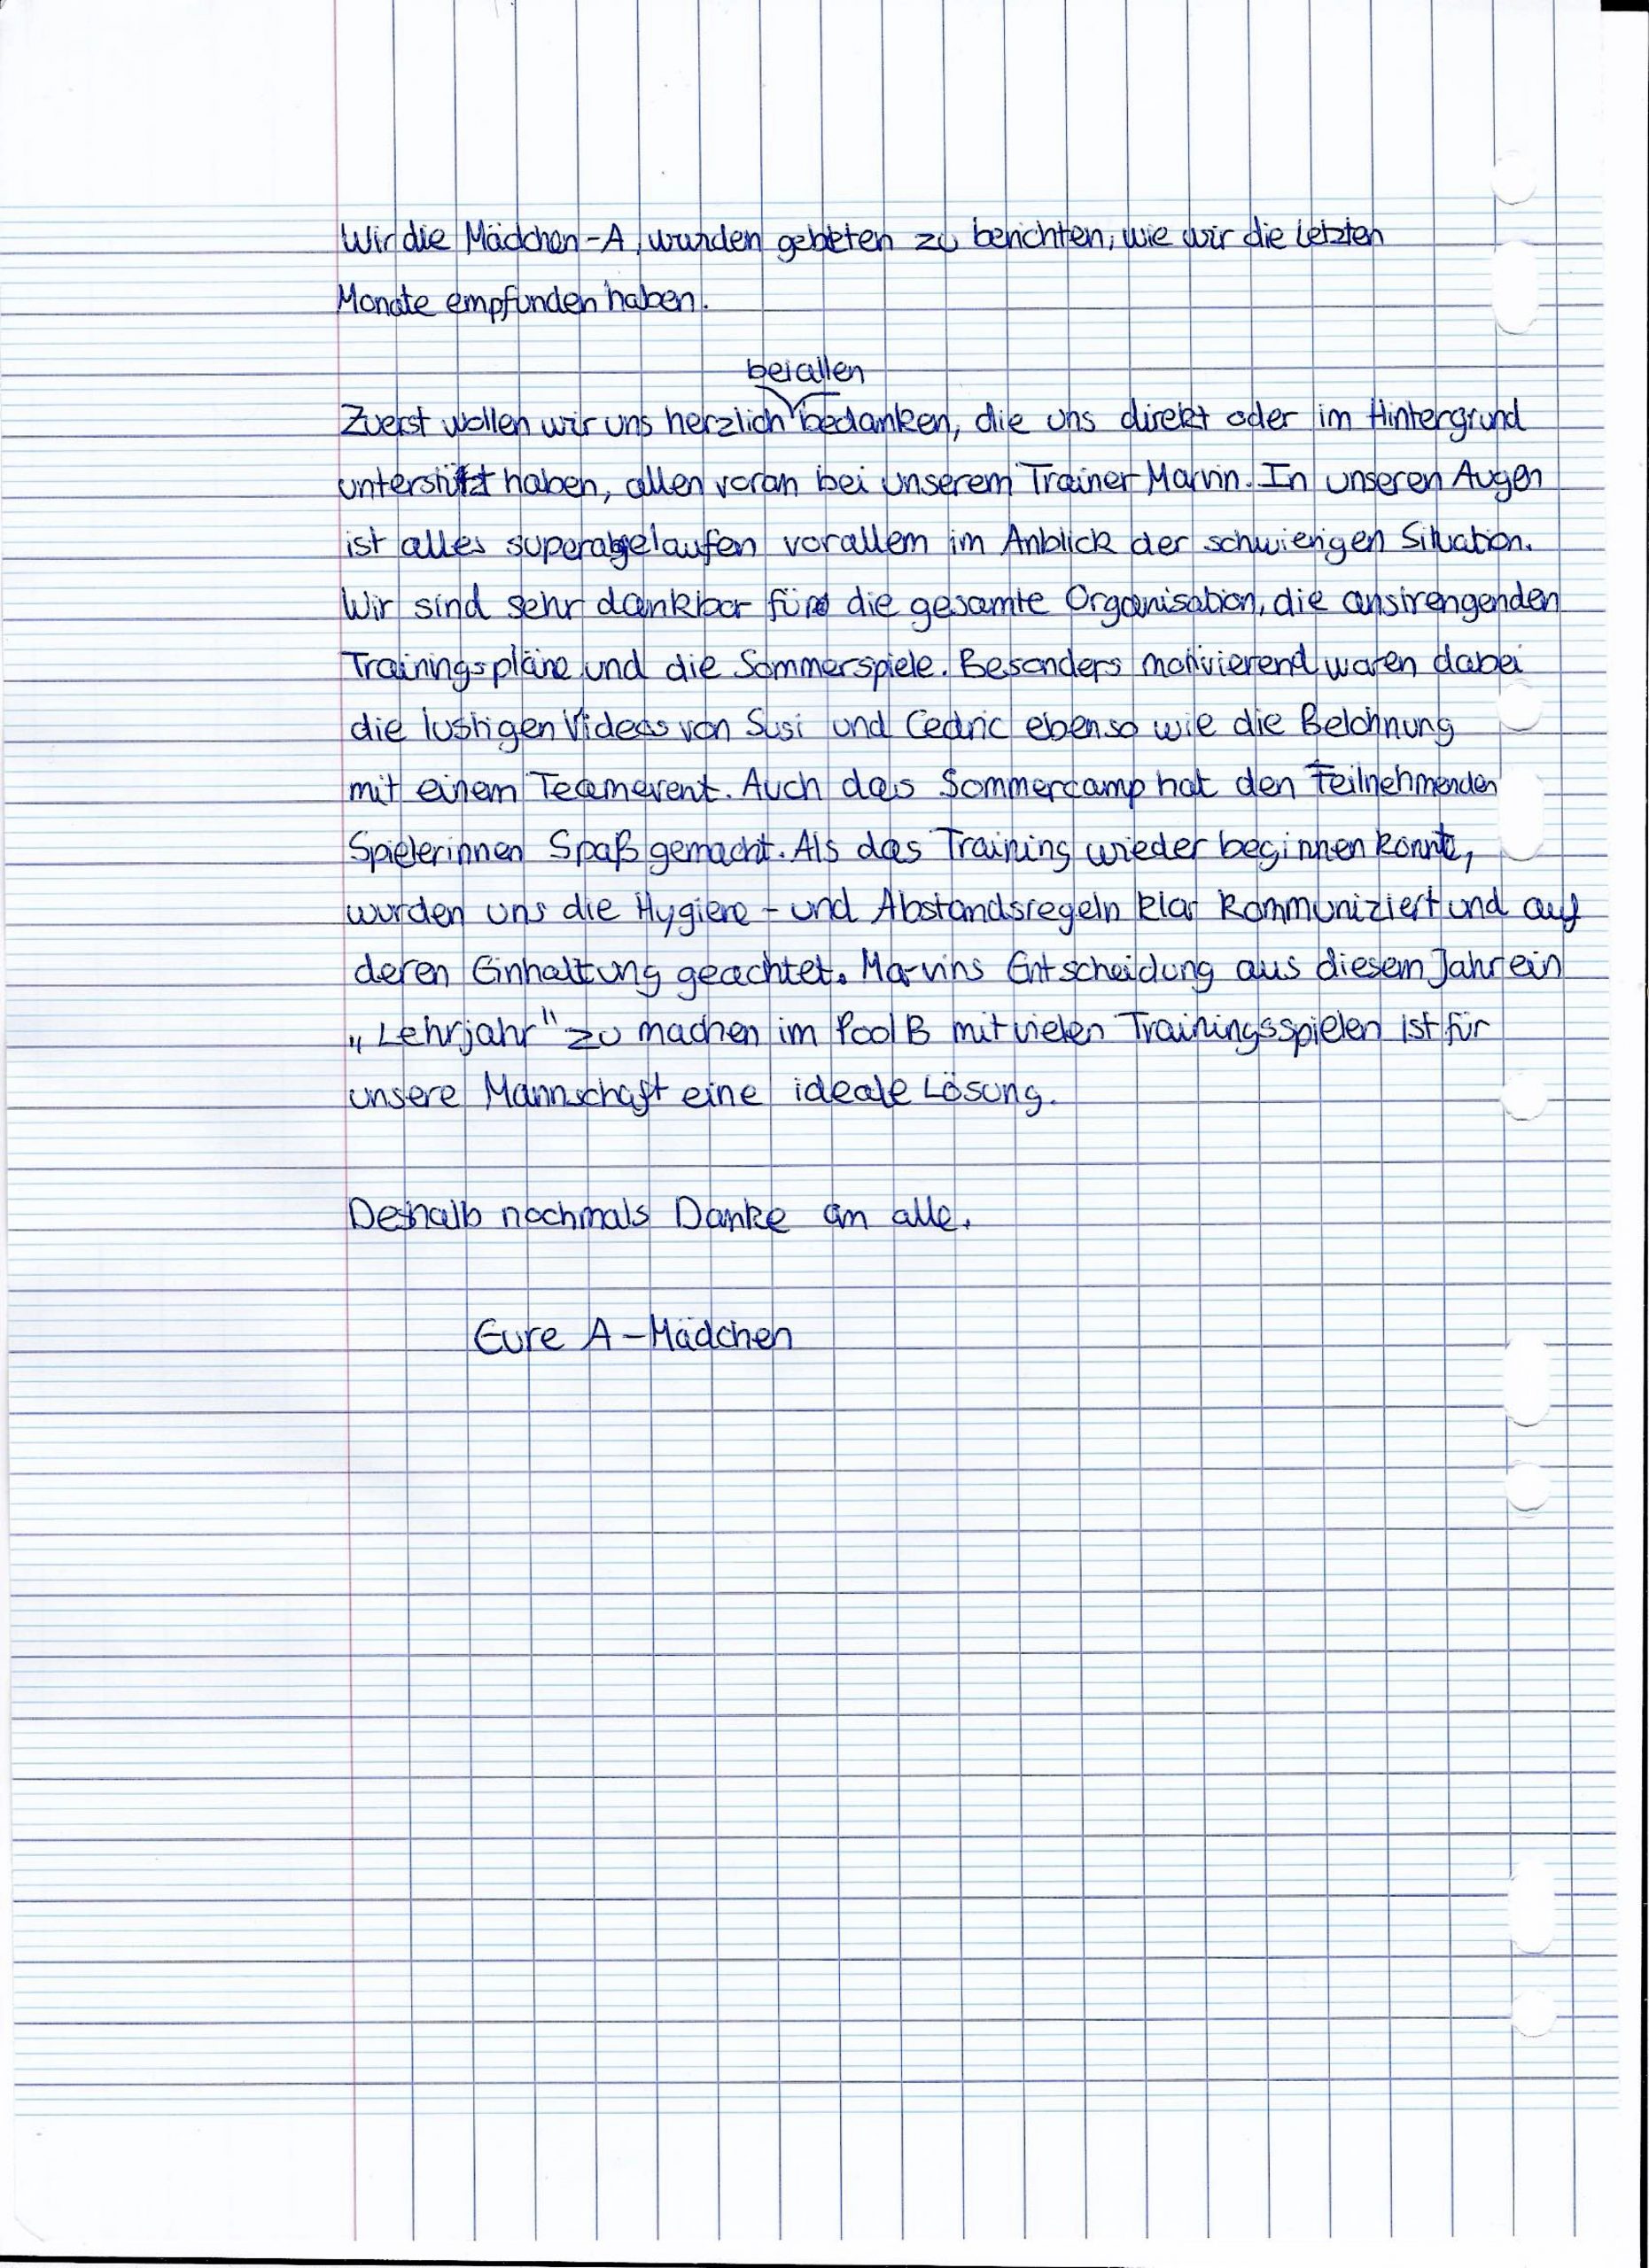 Wir die Mädchen-A, wurden gebeten zu berichten, wie wir die letzten
Monate empfunden haben.
bei allen
Zuerst wollen wir uns herzlich bedanken, die uns direkt oder im Hintergrund
unterstützt haben, allen voran bei unserem Trainer Marvin. In unseren Augen
ist alles super abgelaufen vorallem im Anblick der schwierigen Situation.
Wir sind sehr dankbar für die gesamte Organisation, die anstrengenden
Trainingspläne und die Sommerspiele. Besonders motivierend waren dabei
die lustigen Videos von Susi und Cedric ebenso wie die Belohnung
mit einem Teamevent. Auch das Sommercamp hat den Teilnehmenden
Spielerinnen Spaß gemacht. Als das Training wieder beginnen konnte,
wurden uns die Hygiene - und Abstandsregeln klar kommuniziert und auf
deren Einhaltung geachtet. Marvins Entscheidung aus diesem Jahr ein
„Lehrjahr" zu machen im Pool B mit vielen Trainingsspielen ist für
unsere Mannschaft eine ideale Lösung.
Deshalb nochmals Danke an alle.
Eure A-Mädchen